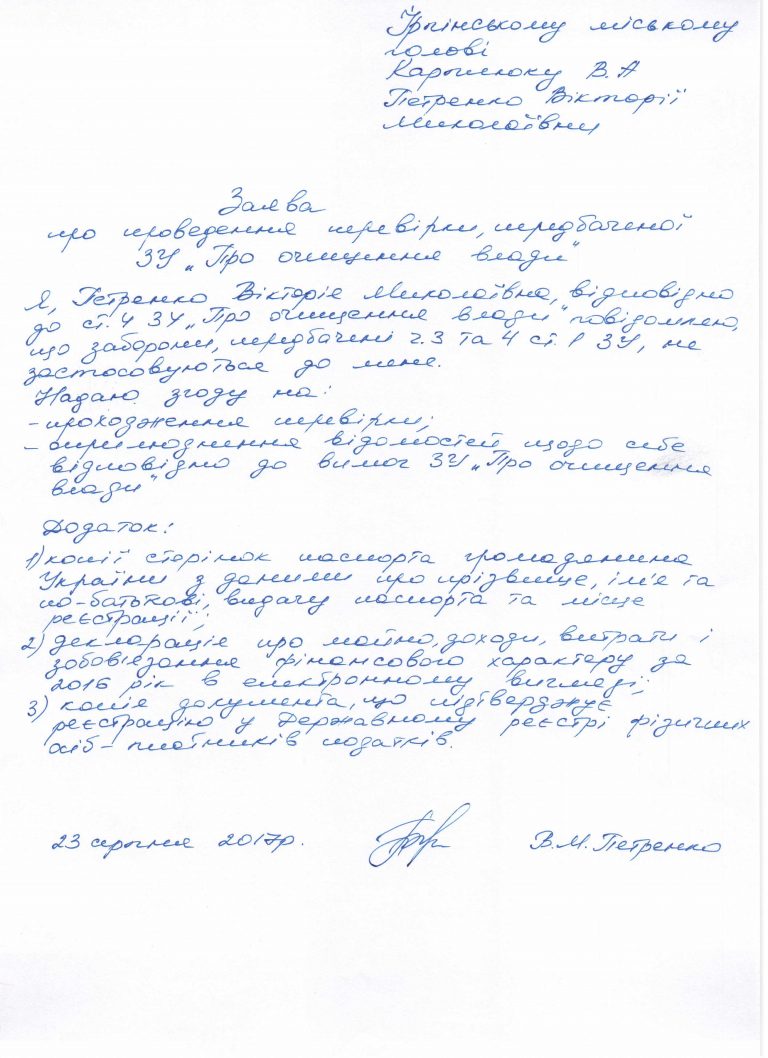 Ірпінському міському
голові
Карплюку В. А
Петренко Вікторії
Миколаївни
Заява
про проведення перевірки, передбаченої
ЗУ „Про очищення влади"
Я, Петренко Вікторія Миколаївна, відповідно
до ст. 4 ЗУ „Про очищення влади" повідомляю,
що заборони, передбачені ч. 3 та 4 ст. 1 ЗУ, не
застосовуються до мене.
Надаю згоду на:
- проходження перевірки;
- оприлюднення відомостей щодо себе
відповідно до вимог ЗУ „Про очищення
влади"
Додаток:
1) копії сторінок паспорта громадянина
України з даними про прізвище, ім'я та
по-батькові, видачу паспорта та місце
реєстрації;
2) декларація про майно, доходи, витрати і
зобов'язання фінансового характеру за
2016 рік в електронному вигляді;
3) копія документа, що підтверджує
реєстрацію у Державному реєстрі фізичних
осіб - платників податків.
23 серпня 2017р. В.М. Петренко